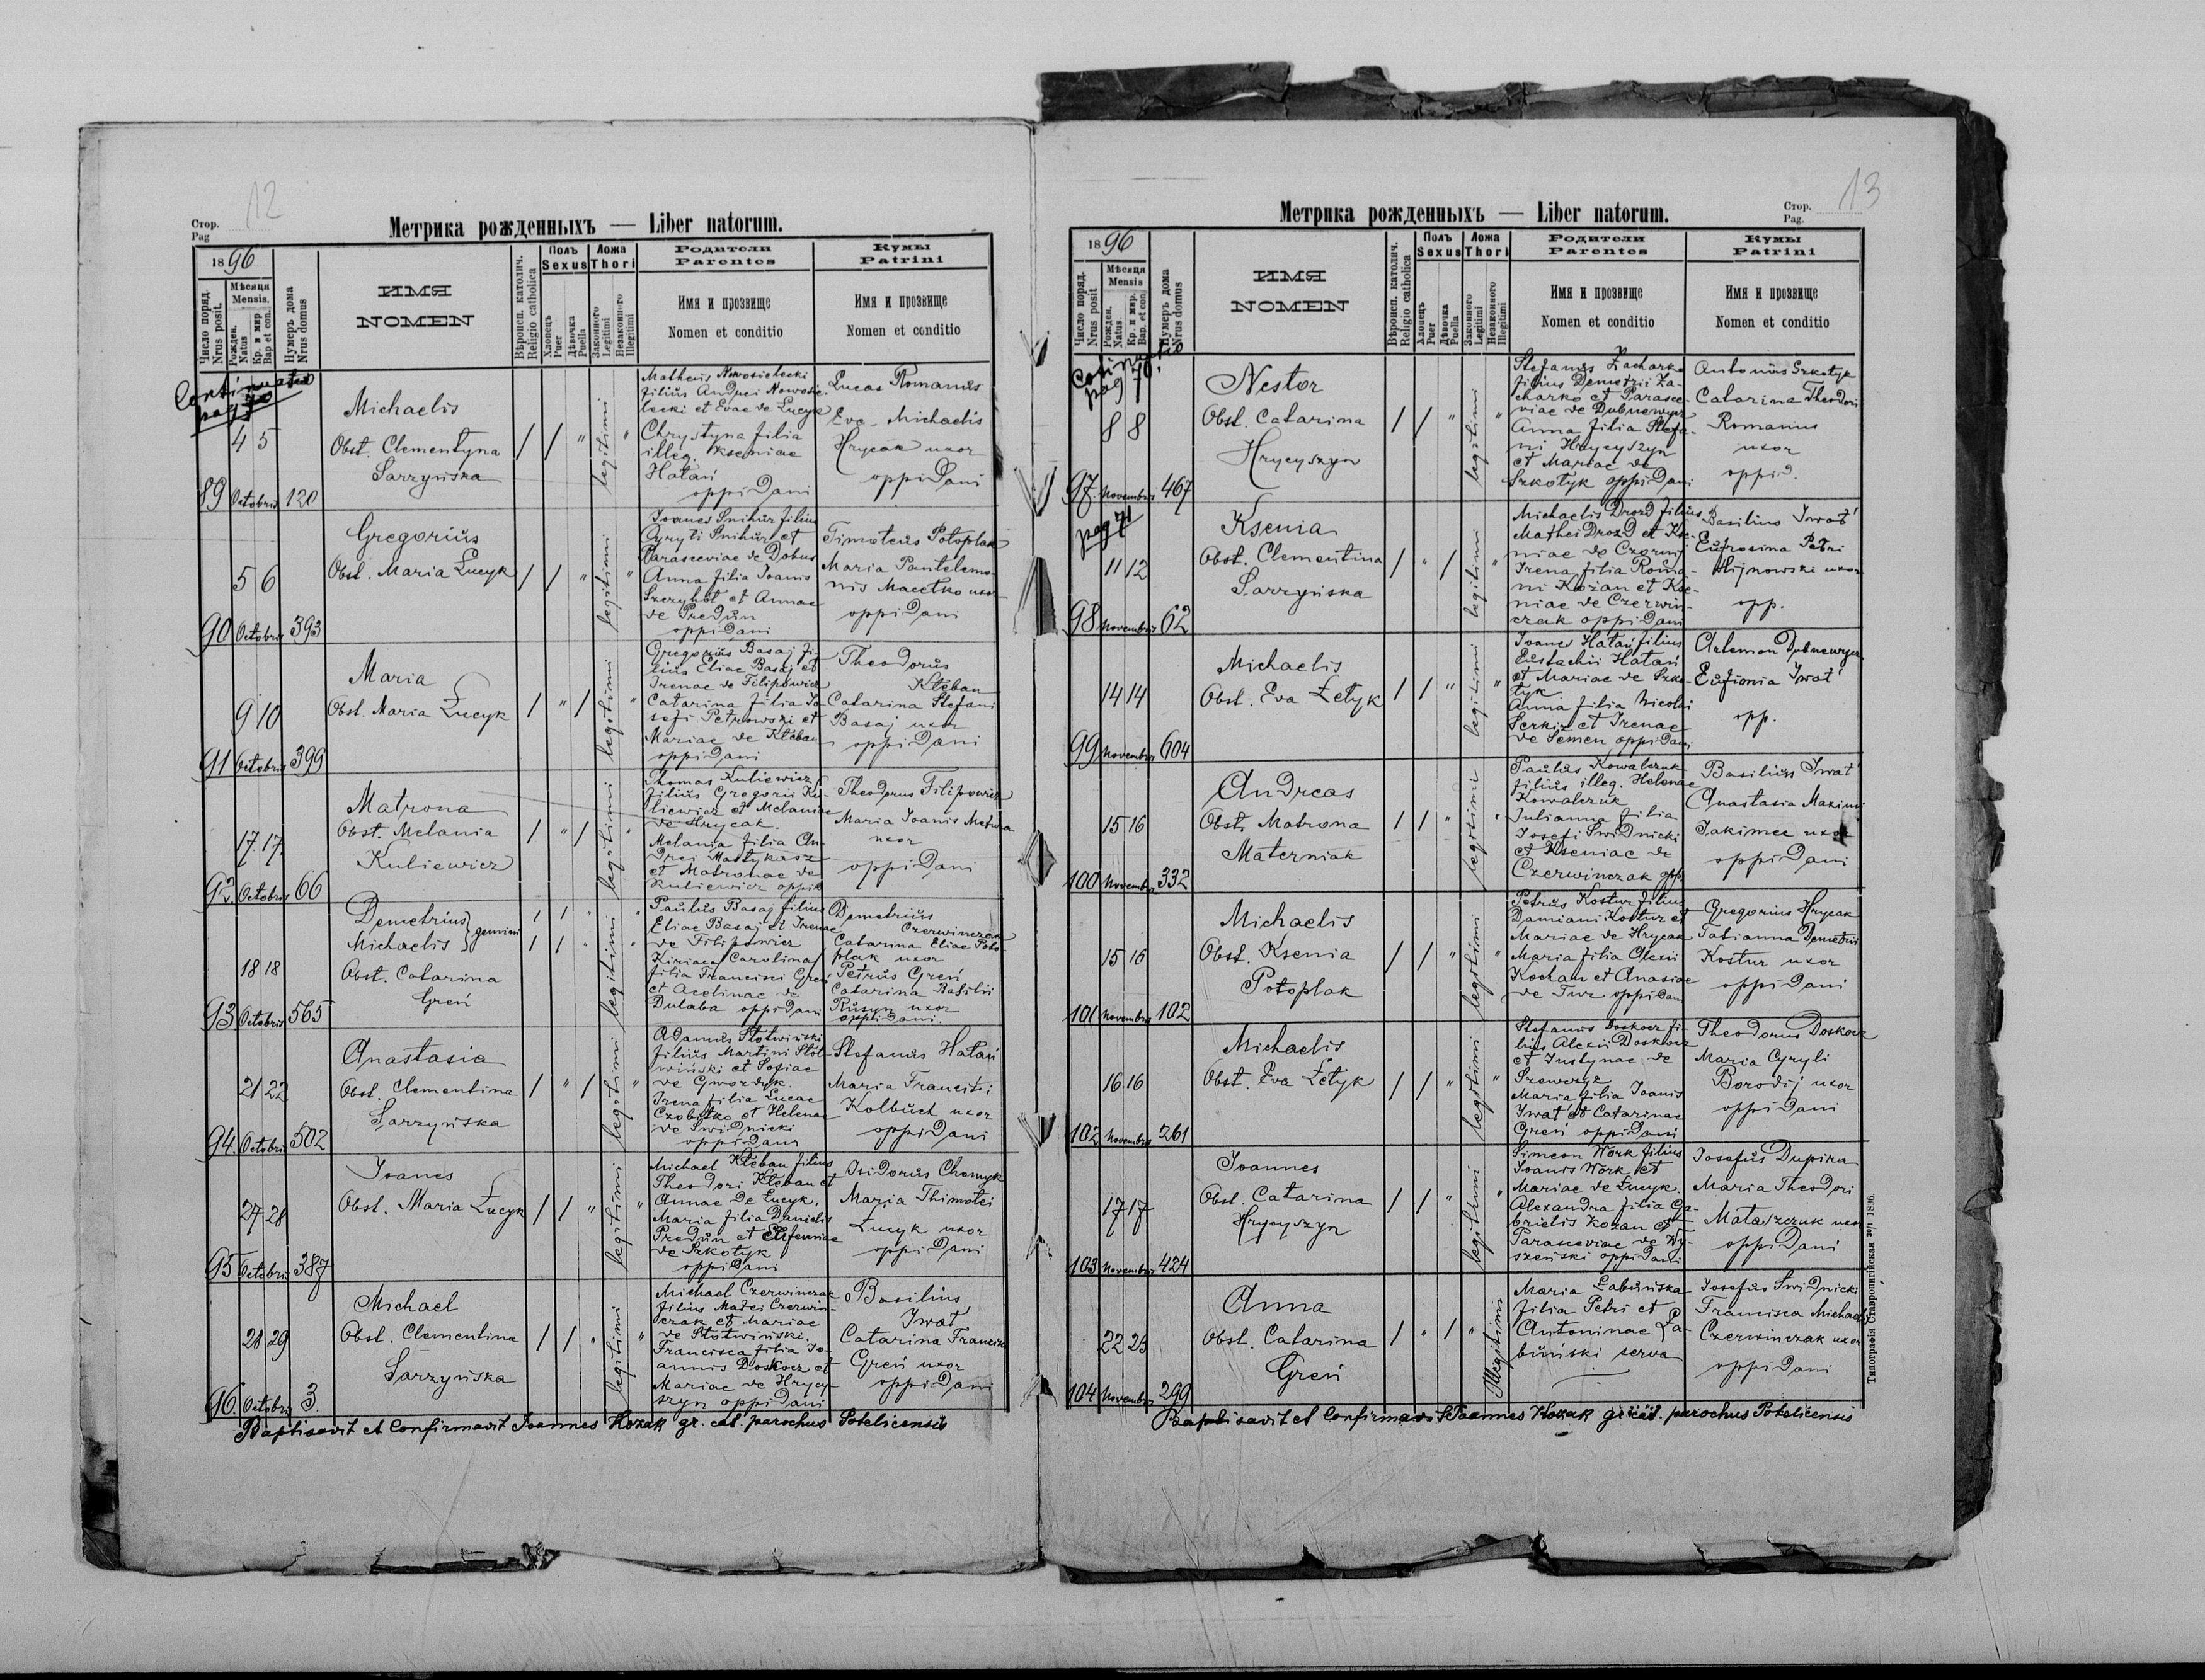 12
Стор.
Pag
Метрика рожденныхъ — Liber natorum.
1896
Число поряд.
Nrus posit.
Мѣсяця
Mensis.
Рожден.
Natus
Кр. и мир
Bap et con.
Нумеръ дома
Nrus domus
ИМЯ
NOMEN
Вѣроисп. католич.
Religio catholica
Полъ
Sexus
Хлопецъ
Puer
Дѣвочка
Puella
Ложа
Thori
Законного
Legitimi
Незаконного
Illegitimi
Родители
Parentes
Имя и прозвище
Nomen et conditio
Кумы
Patrini
Имя и прозвище
Nomen et conditio
Continuatio
pag 70
89 4 5 Octobris 120
Michaelis
Obst. Clementyna
Sarzyńska
/ / " legitimi "
Matheus Nowosielecki
filius Andrei Nowosie-
lecki et Evae de Łucyk
Chrystyna filia
illeg. Kseniae
Hatań
oppidani
Lucas Romanus
Eva Michaelis
Hrycak uxor
oppidani
90 5 6 Octobris 393
Gregorius
Obst. Maria Łucyk
/ / " legitimi "
Joanes Snihur filius
Cyryli Snihur et
Parasceviae de Dobus
Anna filia Joanis
Szeryhot et Annae
de Predun
oppidani
Timoteus Potoplak
Maria Pantelemo-
nis Macetko uxor
oppidani
91 9 10 Octobris 399
Maria
Obst. Maria Łucyk
/ " / legitimi "
Gregorius Basaj fi-
lius Eliae Basaj et
Irenae de Filipowicz
Catarina filia Jo-
sefi Petrowski et
Mariae de Kłeban
oppidani
Theodorus
Kłeban
Catarina Stefani
Basaj uxor
oppidani
92. 17. 17. Octobris 66
Matrona
Obst. Melania
Kuliewicz
/ " / legitimi "
Thomas Kuliewicz
filius Gregorii Ku-
liewicz et Melaniae
de Hrycak.
Melania filia An-
drei Matykasz
et Matronae de
Kuliewicz oppid
Theodorus Filipowicz
Maria Joanis
uxor
oppidani
93 18 18 Octobris 565
Demetrius } gemini
Michaelis
Obst. Catarina
Greń
/ / " legitimi "
/ / " "
Paulus Basaj filius
Eliae Basaj et Irenae
de Filipowicz
Carolina
filia Francisci Greń
et Acelinae de
Dulaba oppidani
Demetrius
Czerwinczak
Catarina Eliae Poto-
plak uxor
Petrus Greń
Catarina Basilii
Rusyn uxor
oppidani.
94. 21 22 Octobris 502
Anastasia
Obst. Clementina
Sarzyńska
/ " / legitimi "
Adamus Słotwiński
filius Martini Słot-
wiński et Sofiae
de Gwozdyk.
Irena filia Lucae
Czobitko et Helenae
de Swidnicki
oppidani
Stefanus Hatań
Maria Francisci
Kolbuch uxor
oppidani
95 27 28 Octobris 387
Joanes
Obst. Maria Łucyk
/ / " legitimi "
Michael Kłeban filius
Theodori Kłeban et
Annae de Łucyk,
Maria filia Danielis
Predun et Eufemiae
de Szkotyk
oppidani
Isidorus Chomyk
Maria Thimotei
Łucyk uxor
oppidani
96. 28 29 Octobris 3.
Michael
Obst. Clementina
Sarzyńska
/ / " legitimi "
Michael Czerwinczak
filius Matei Czerwin-
czak et Mariae
de Słotwiński.
Francisca filia Jo-
annis Doskocz et
Mariae de Hrycy-
szyn oppidani
Basilius
Iwat
Catarina Francisci
Greń uxor
oppidani
Baptisavit et Confirmavit Joannes Kozak gr. cat. parochus Potelicensis
13
Стор.
Pag.
Метрика рожденныхъ — Liber natorum.
1896
Число поряд.
Nrus posit
Мѣсяця
Mensis
Рожден.
Natus
Кр. и мир.
Bap. et con.
Нумеръ дома
Nrus domus
ИМЯ
NOMEN
Вѣроисп. католич.
Religio catholica
Полъ
Sexus
Хлопецъ
Puer
Дѣвочка
Puella
Ложа
Thori
Законного
Legitimi
Незаконного
Illegitimi
Родители
Parentes
Имя и прозвище
Nomen et conditio
Кумы
Patrini
Имя и прозвище
Nomen et conditio
pag 70.
97. 8 8 Novembris 467
Nestor
Obst. Catarina
Hrycyszyn
/ / " legitimi "
Stefanus Zacharko
filius Demetrii Za-
charko et Parasce-
viae de Dubnewycz
Anna filia Stefa-
ni Hrycyszyn
et Mariae de
Szkotyk oppidani
Antonius Szkotyk
Catarina Theodori
Romanus
uxor
oppid.
pag 71
98 11 12 Novembris 62
Ksenia
Obst. Clementina
Sarzyńska
/ " / legitimi "
Michaelis Drozd filius
Mathei Drozd et Kse-
niae de Czornij
Irena filia Roma-
ni Kozan et Kse-
niae de Czerwin-
czak oppidani
Basilius Iwat
Eufrosina Petri
Hijnowski uxor
opp.
99 14 14 Novembris 604
Michaelis
Obst. Eva Łetyk
/ / " legitimi "
Joanes Hatań filius
Eustachii Hatań
et Mariae de Szko-
tyk.
Anna filia Nicolai
Serkiz et Irenae
de Semen oppidani
Artemon Dubnewycz
Eufimia Iwat
opp.
100 15 16 Novembris 332
Andreas
Obst. Matrona
Materniak
/ / " legitimi "
Paulus Kowalczuk
filius illeg. Helenae
Kowalczuk
Julianna filia
Josefi Swidnicki
et Kseniae de
Czerwinczak opp.
Basilius Iwat
Anastasia Maximi
Jakimec uxor
oppidani
101 15 16 Novembris 102
Michaelis
Obst. Ksenia
Potoplak
/ / " legitimi "
Petrus Kostur filius
Damiani Kostur et
Mariae de Hrycak
Maria filia Olexii
Kochan et Anasiae
de Twz oppidani
Gregorius Hrycak
Tatianna Demetrii
Kostur uxor
oppidani
102 16 16 Novembris 261
Michaelis
Obst. Eva Łetyk
/ / " legitimi "
Stefanus Doskocz fi-
lius Alexii Doskocz
et Justynae de
Szewczyk
Maria filia Joanis
Iwat et Catarinae
Greń oppidani
Theodorus Doskocz
Maria Cyryli
Borodij uxor
oppidani
103 17 17 Novembris 424
Joannes
Obst. Catarina
Hrycyszyn
/ / " legitimi "
Simeon Work filius
Joanis Work et
Mariae de Łucyk.
Alexandra filia Ga-
brielis Kozan et
Parasceviae de Wy-
szeński oppidani
Josefus Dupira
Maria Theodori
Mataszczuk uxor
oppidani
104 22 23 Novembris 299
Anna
Obst. Catarina
Greń
/ " / " Illegitimi
Maria Łabuńska
filia Petri et
Antoninae Ła-
buński serva
Josefus Swidnicki
Francisca Michaelis
Czerwinczak uxor
oppidani
Baptisavit et Confirmavit Joannes Kozak gr. cat. parochus Potelicensis
Типографія Ставропигійская зор 1896.